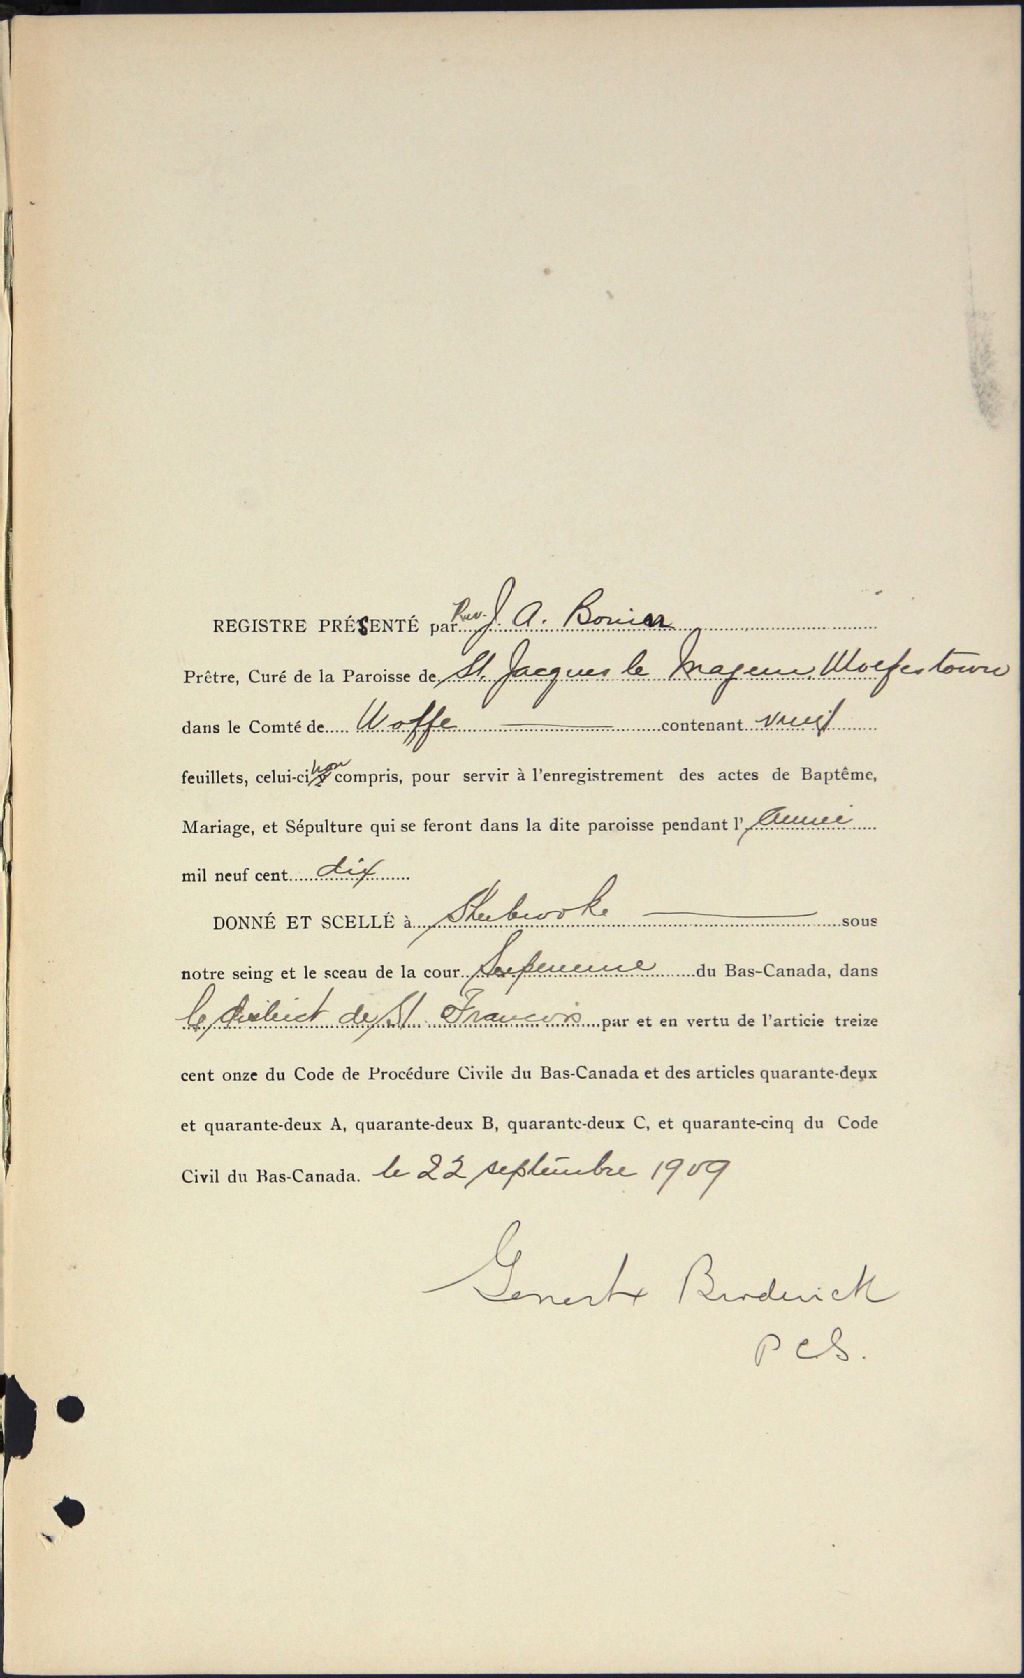 REGISTRE PRÉSENTÉ par Rev. J. A. Bonin
Prêtre, Curé de la Paroisse de St. Jacques le Mageur Wolfestown
dans le Comté de Wolfe contenant vingt
feuillets, celui-ci non compris, pour servir à l'enregistrement des actes de Baptême,
Mariage, et Sépulture qui se feront dans la dite paroisse pendant l'année
mil neuf cent dix
DONNÉ ET SCELLÉ à Sherbrooke sous
notre seing et le sceau de la cour Superieure du Bas-Canada, dans
le district de St. Francois par et en vertu de l'articie treize
cent onze du Code de Procédure Civile du Bas-Canada et des articles quarante-deux
et quarante-deux A, quarante-deux B, quarante-deux C, et quarante-cinq du Code
Civil du Bas-Canada. le 22 septembre 1909
Genest & Broderick
P C S.